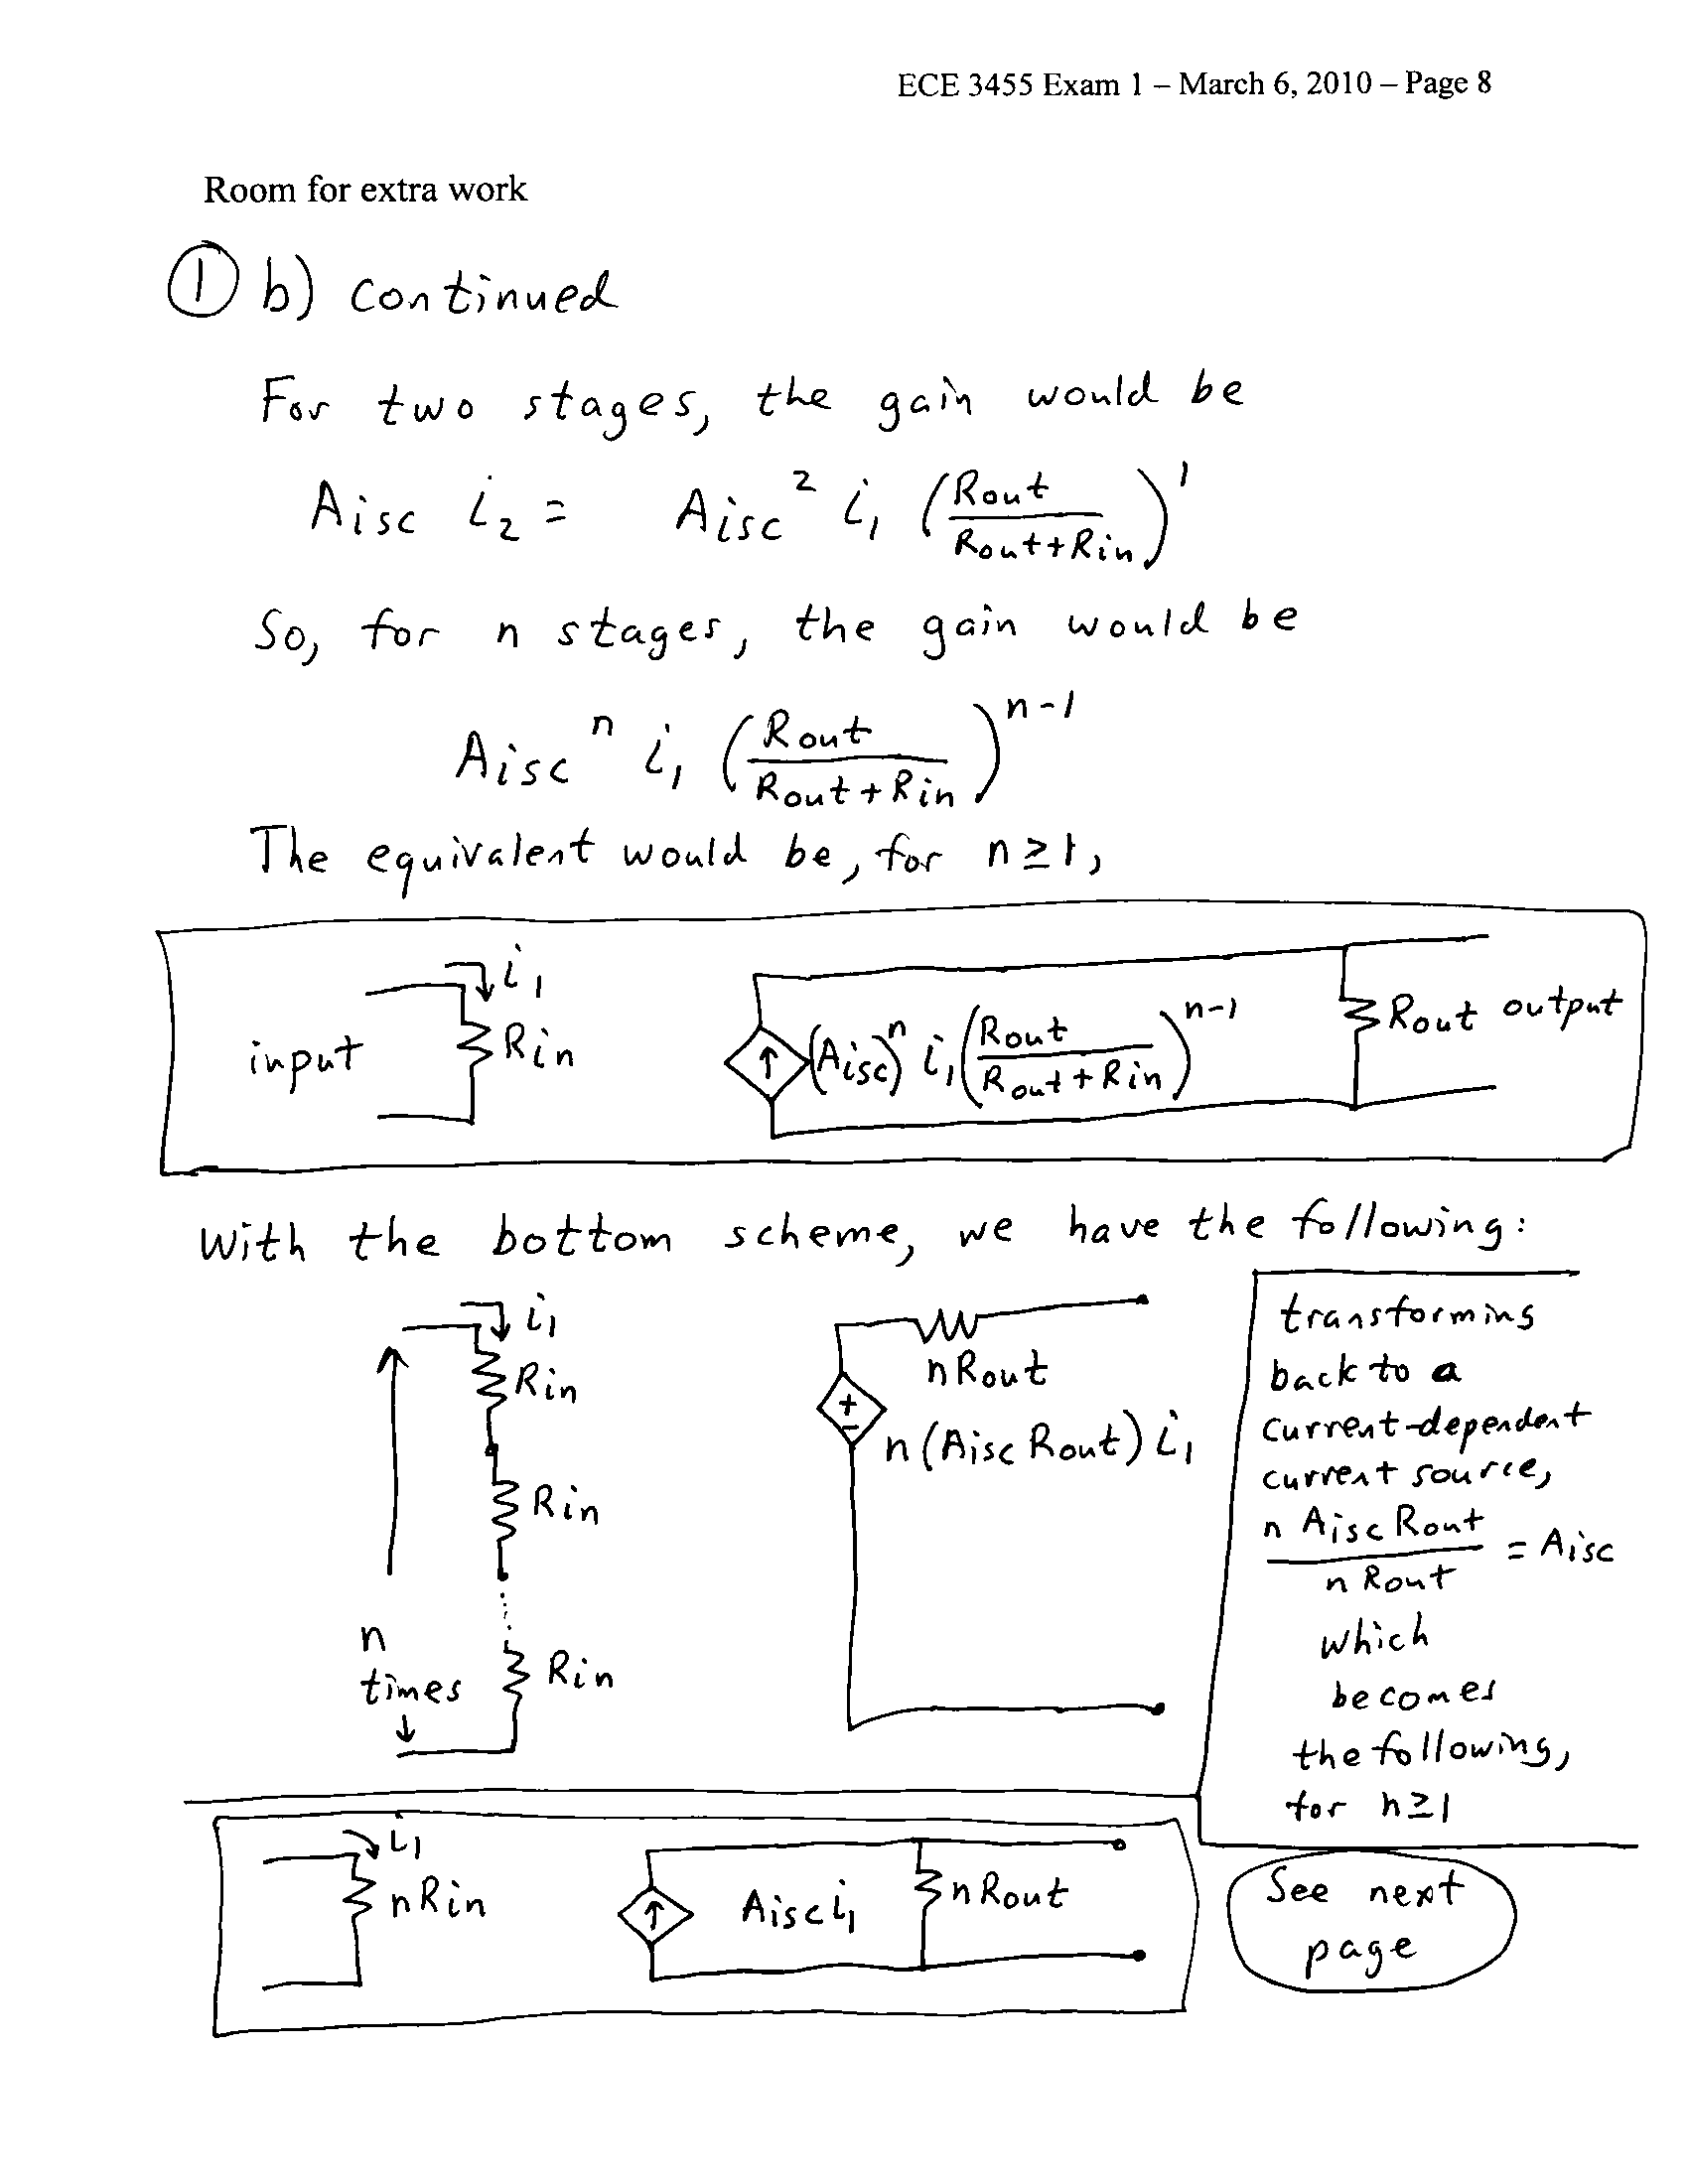 ECE 3455 Exam 1 – March 6, 2010 – Page 8
Room for extra work
① b) continued
For two stages, the gain would be
Aisc i₂ = Aisc² i₁ (Rout / (Rout+Rin))¹
So, for n stages, the gain would be
Aiscⁿ i₁ (Rout / (Rout+Rin))ⁿ⁻¹
The equivalent would be, for n≥1,
i₁
input
Rin
(Aisc)ⁿ i₁ (Rout / (Rout+Rin))ⁿ⁻¹
Rout output
With the bottom scheme, we have the following:
i₁
Rin
Rin
n times
Rin
nRout
+
−
n(Aisc Rout) i₁
transforming
back to a
current-dependent
current source,
n Aisc Rout / n Rout = Aisc
which
becomes
the following,
for n≥1
i₁
nRin
Aisc i₁
nRout
See next
page